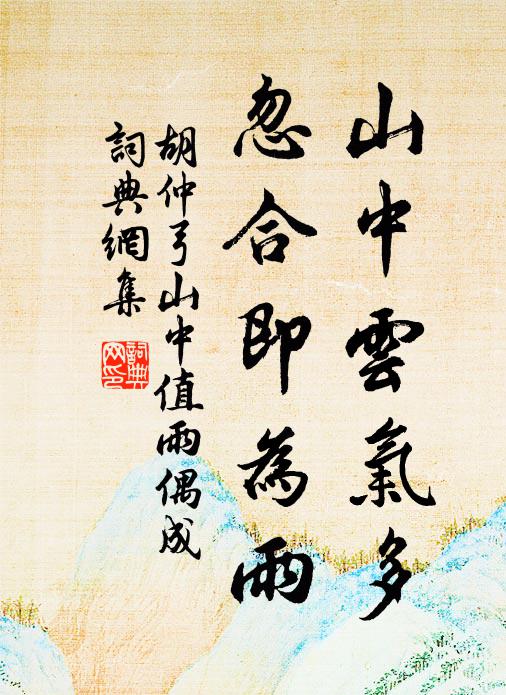 山中雲氣多
忽合即為雨
胡仲弓山中值雨偶成
詞典網集
詞典網印